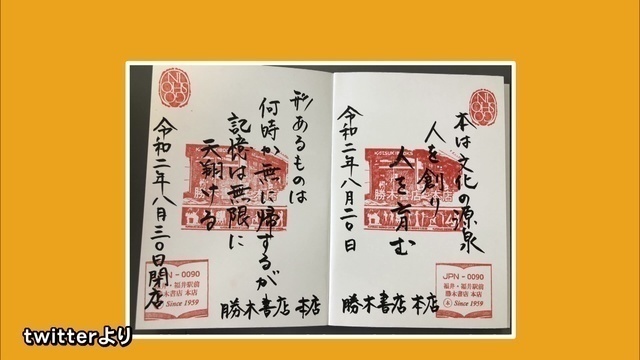 本は文化の源泉
人を創り
人を育む
令和二年八月二〇日
勝木書店 本店
勝木書店本店
JPN-0090
福井・福井駅前
勝木書店 本店
Since 1959
形あるものは
何時か無に帰するが
記憶は無限に
天翔ける
令和二年八月三〇日閉店
勝木書店 本店
JPN-0090
福井・福井駅前
勝木書店 本店
Since 1959
twitterより